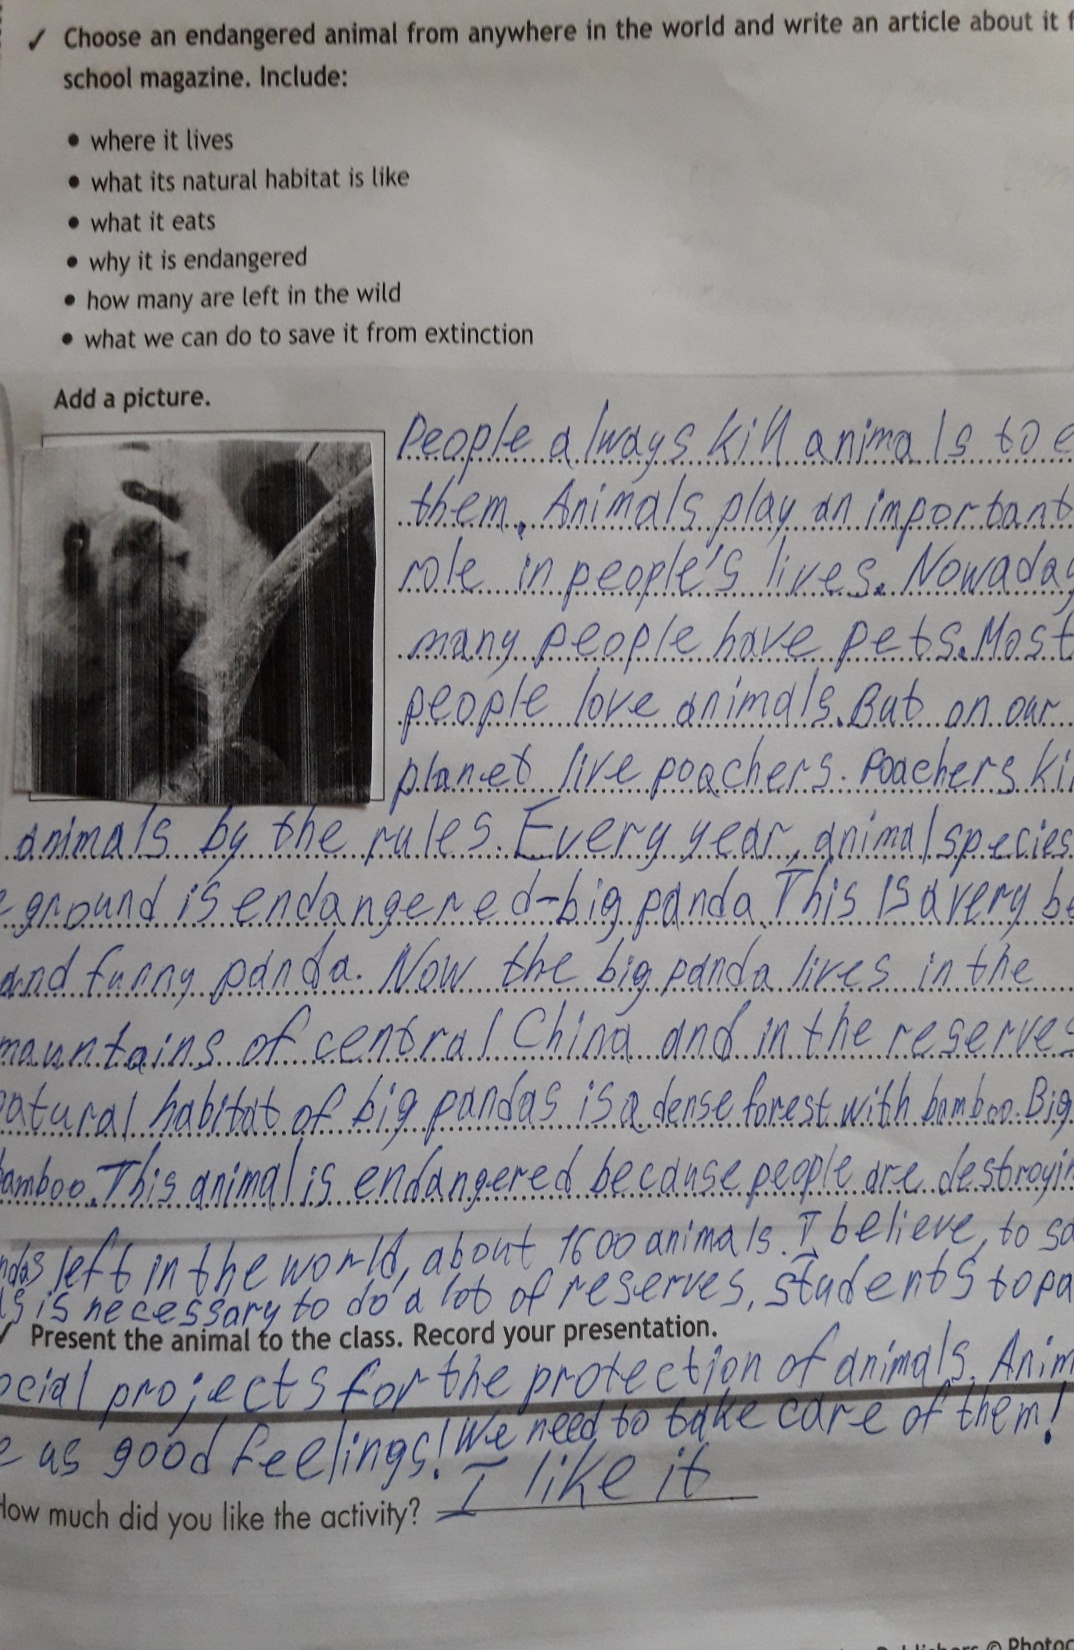 ✓ Choose an endangered animal from anywhere in the world and write an article about it f
school magazine. Include:
• where it lives
• what its natural habitat is like
• what it eats
• why it is endangered
• how many are left in the wild
• what we can do to save it from extinction
Add a picture.
People always kill animals to e
them. Animals play an important
role in people's lives. Nowaday
many people have pets. Most
people love animals. But on our
planet live poachers. Poachers ki
animals by the rules. Every year, animal species
ground is endangered-big panda. This is a very be
and funny panda. Now the big panda lives in the
mauntains of central China and in the reserves
natural habitat of big pandas is a dense forest with bamboo. Big
bamboo. This animal is endangered because people are destroyin
ndas left in the world, about 1600 animals. I believe, to sa
ls is necessary to do a lot of reserves, students to pa
✓ Present the animal to the class. Record your presentation.
ocial projects for the protection of animals. Anim
e us good feelings! We need to take care of them!
How much did you like the activity? I like it
Publishers © Photoc